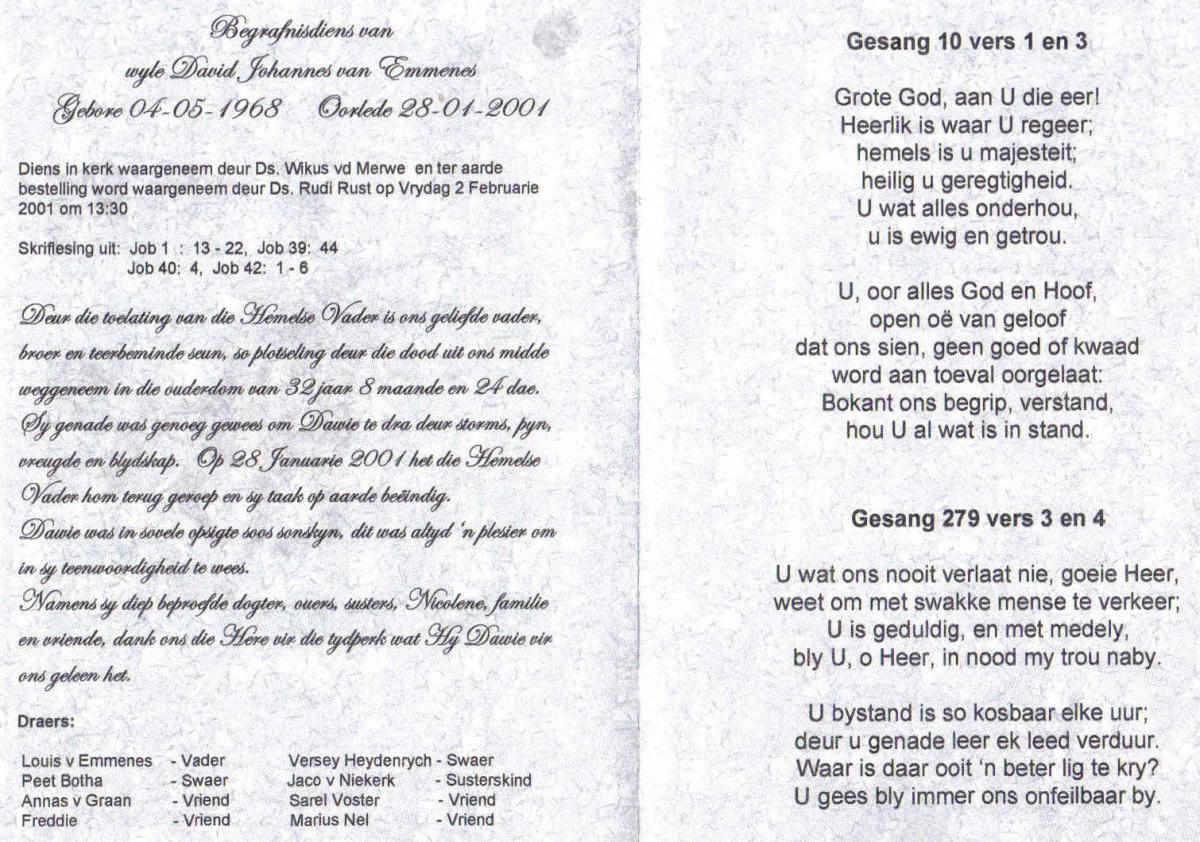 Begrafnisdiens van
wyle David Johannes van Emmenes
Gebore 04-05-1968 Oorlede 28-01-2001
Diens in kerk waargeneem deur Ds. Wikus vd Merwe en ter aarde
bestelling word waargeneem deur Ds. Rudi Rust op Vrydag 2 Februarie
2001 om 13:30
Skriflesing uit: Job 1 : 13 - 22, Job 39: 44
Job 40: 4, Job 42: 1 - 6
Deur die toelating van die Hemelse Vader is ons geliefde vader,
broer en teerbeminde seun, so plotseling deur die dood uit ons midde
weggeneem in die ouderdom van 32 jaar 8 maande en 24 dae.
Sy genade was genoeg gewees om Dawie te dra deur storms, pyn,
vreugde en blydskap. Op 28 Januarie 2001 het die Hemelse
Vader hom terug geroep en sy taak op aarde beëindig.
Dawie was in sovele opsigte soos sonskyn, dit was altyd 'n plesier om
in sy teenwoordigheid te wees.
Namens sy diep beproefde dogter, ouers, susters, Nicolene, familie
en vriende, dank ons die Here vir die tydperk wat Hy Dawie vir
ons geleen het.
Draers:
Louis v Emmenes - Vader Versey Heydenrych - Swaer
Peet Botha - Swaer Jaco v Niekerk - Susterskind
Annas v Graan - Vriend Sarel Voster - Vriend
Freddie - Vriend Marius Nel - Vriend
Gesang 10 vers 1 en 3
Grote God, aan U die eer!
Heerlik is waar U regeer;
hemels is u majesteit;
heilig u geregtigheid.
U wat alles onderhou,
u is ewig en getrou.
U, oor alles God en Hoof,
open oë van geloof
dat ons sien, geen goed of kwaad
word aan toeval oorgelaat:
Bokant ons begrip, verstand,
hou U al wat is in stand.
Gesang 279 vers 3 en 4
U wat ons nooit verlaat nie, goeie Heer,
weet om met swakke mense te verkeer;
U is geduldig, en met medely,
bly U, o Heer, in nood my trou naby.
U bystand is so kosbaar elke uur;
deur u genade leer ek leed verduur.
Waar is daar ooit 'n beter lig te kry?
U gees bly immer ons onfeilbaar by.